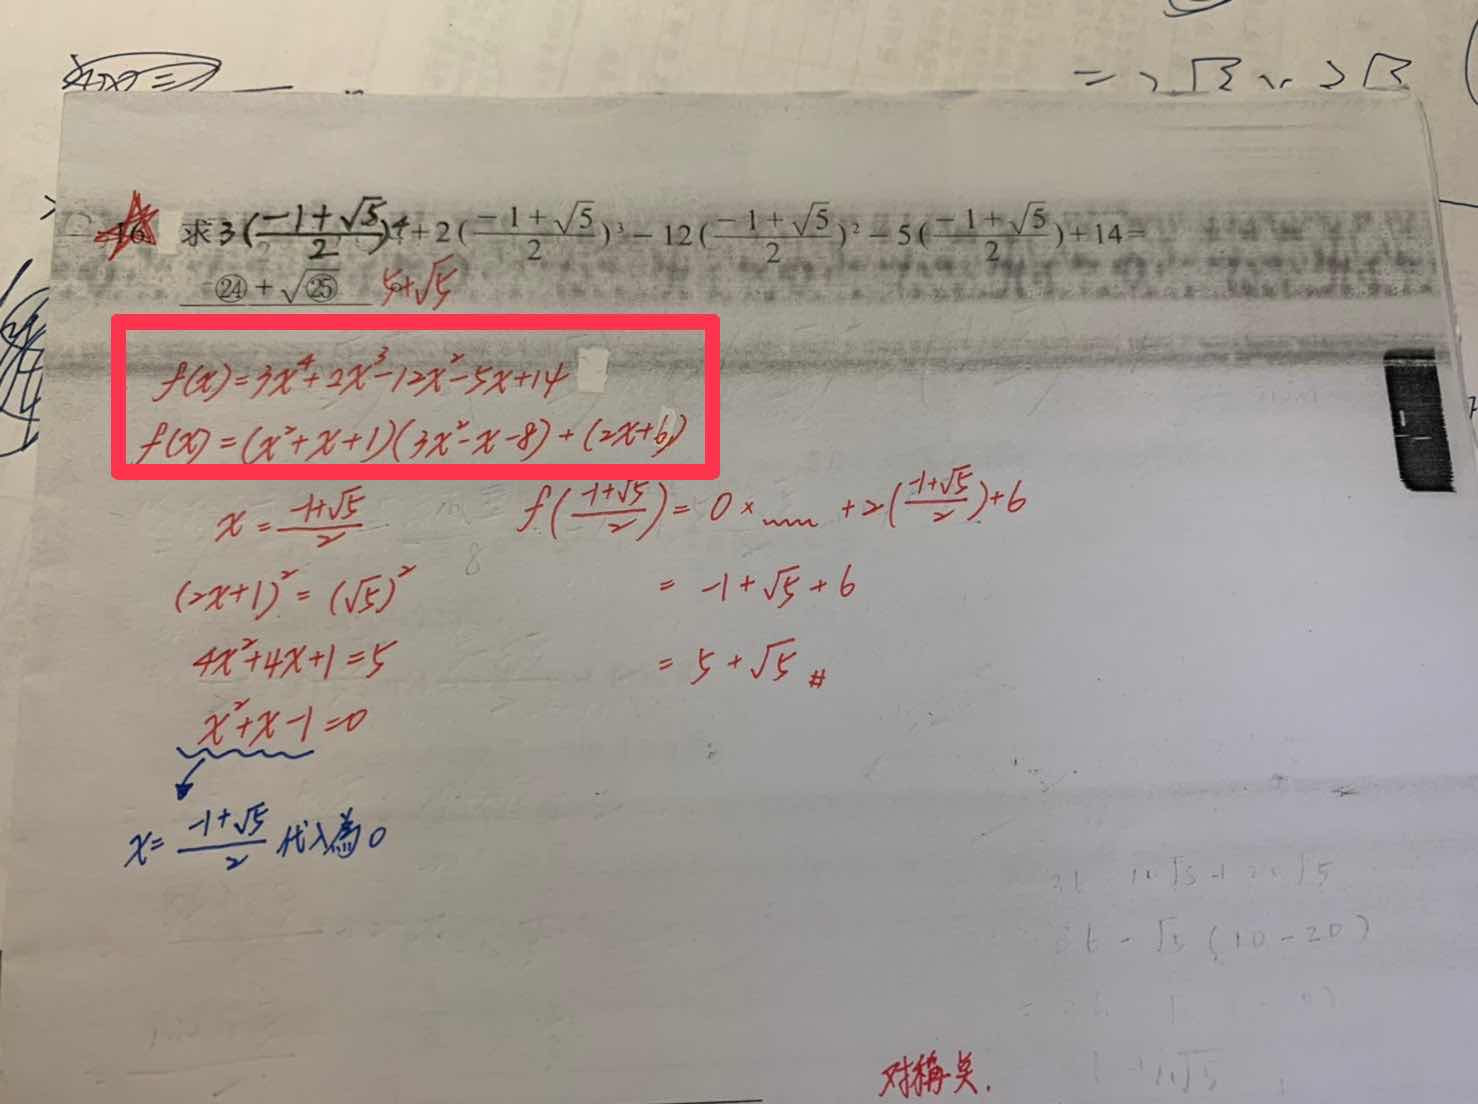 = 2√3 × 2√3
16. 求3(\frac{-1+√5}{2})⁴+2(\frac{-1+√5}{2})³-12(\frac{-1+√5}{2})²-5(\frac{-1+√5}{2})+14=
㉔+√㉕ 5+√5
f(x)=3x⁴+2x³-12x²-5x+14
f(x)=(x²+x+1)(3x²-x-8)+(2x+6)
x=\frac{-1+√5}{2}
(2x+1)²=(√5)²
4x²+4x+1=5
x²+x-1=0
x=\frac{-1+√5}{2}代入為0
f(\frac{-1+√5}{2})=0×﹏+2(\frac{-1+√5}{2})+6
=-1+√5+6
=5+√5 #
8
-√5(10-20)
对稱矣.